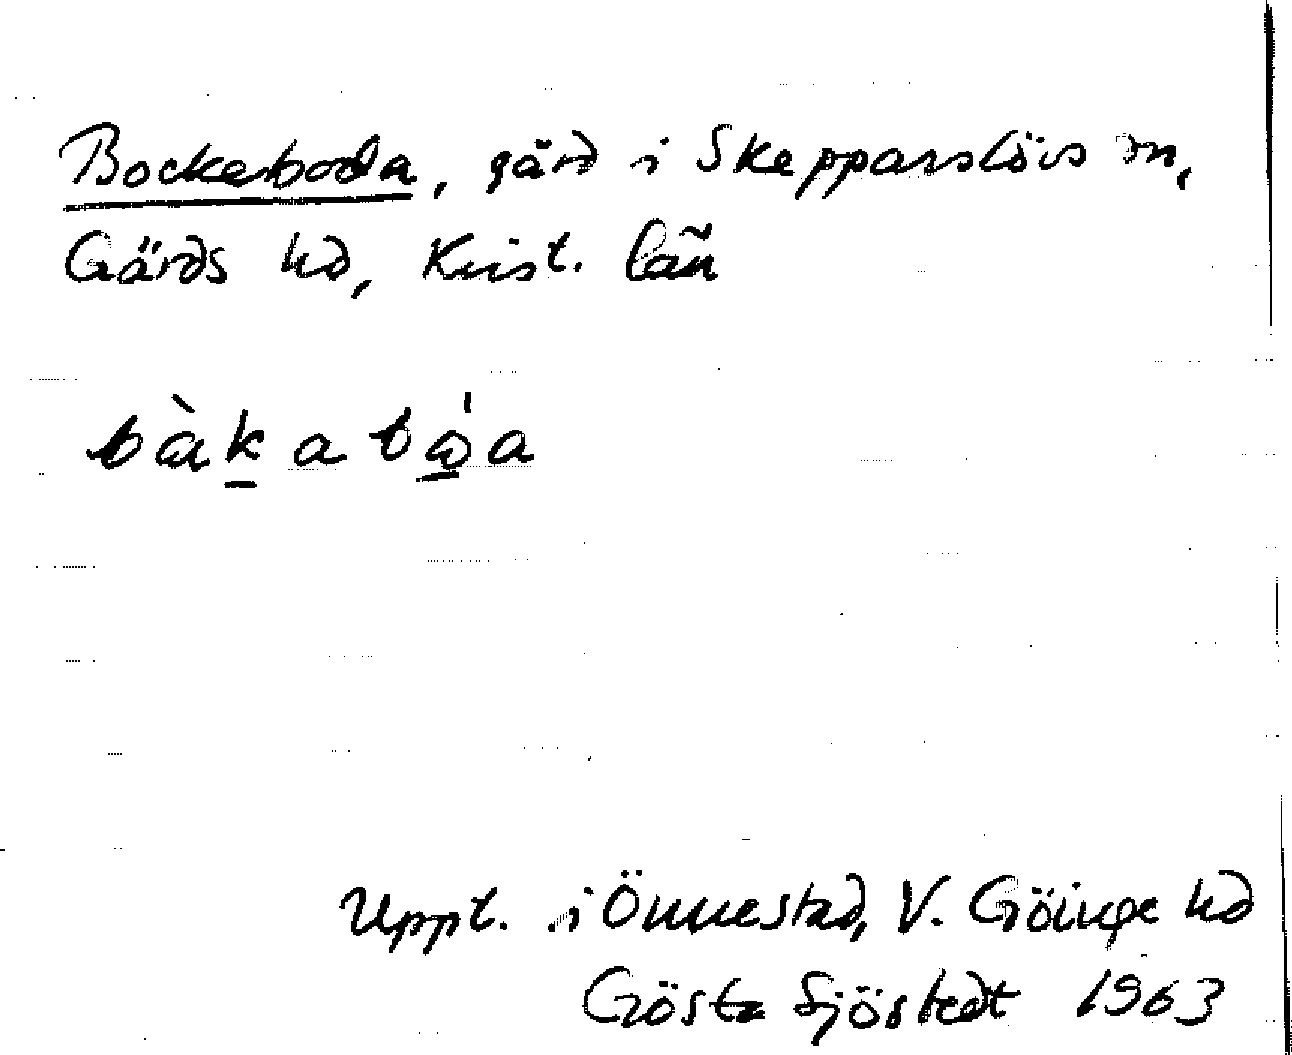 Bockeboda, gård i Skepparslövs sn,
Gärds hd, Krist. län
bàkabǻa
Uppt. i Önnestad, V. Göinge hd
Gösta Sjöstedt 1963